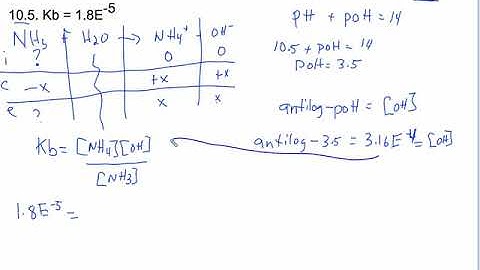 10.5. Kb = 1.8E^-5
NH₃ + H₂O → NH₄⁺ OH⁻
i ? 0 0
c -x +x +x
e ? x x
Kb = [NH₄][OH]
[NH₃]
1.8E^-5 =
pH + pOH = 14
10.5 + pOH = 14
pOH = 3.5
antilog -pOH = [OH]
antilog -3.5 = 3.16E^-4 = [OH]